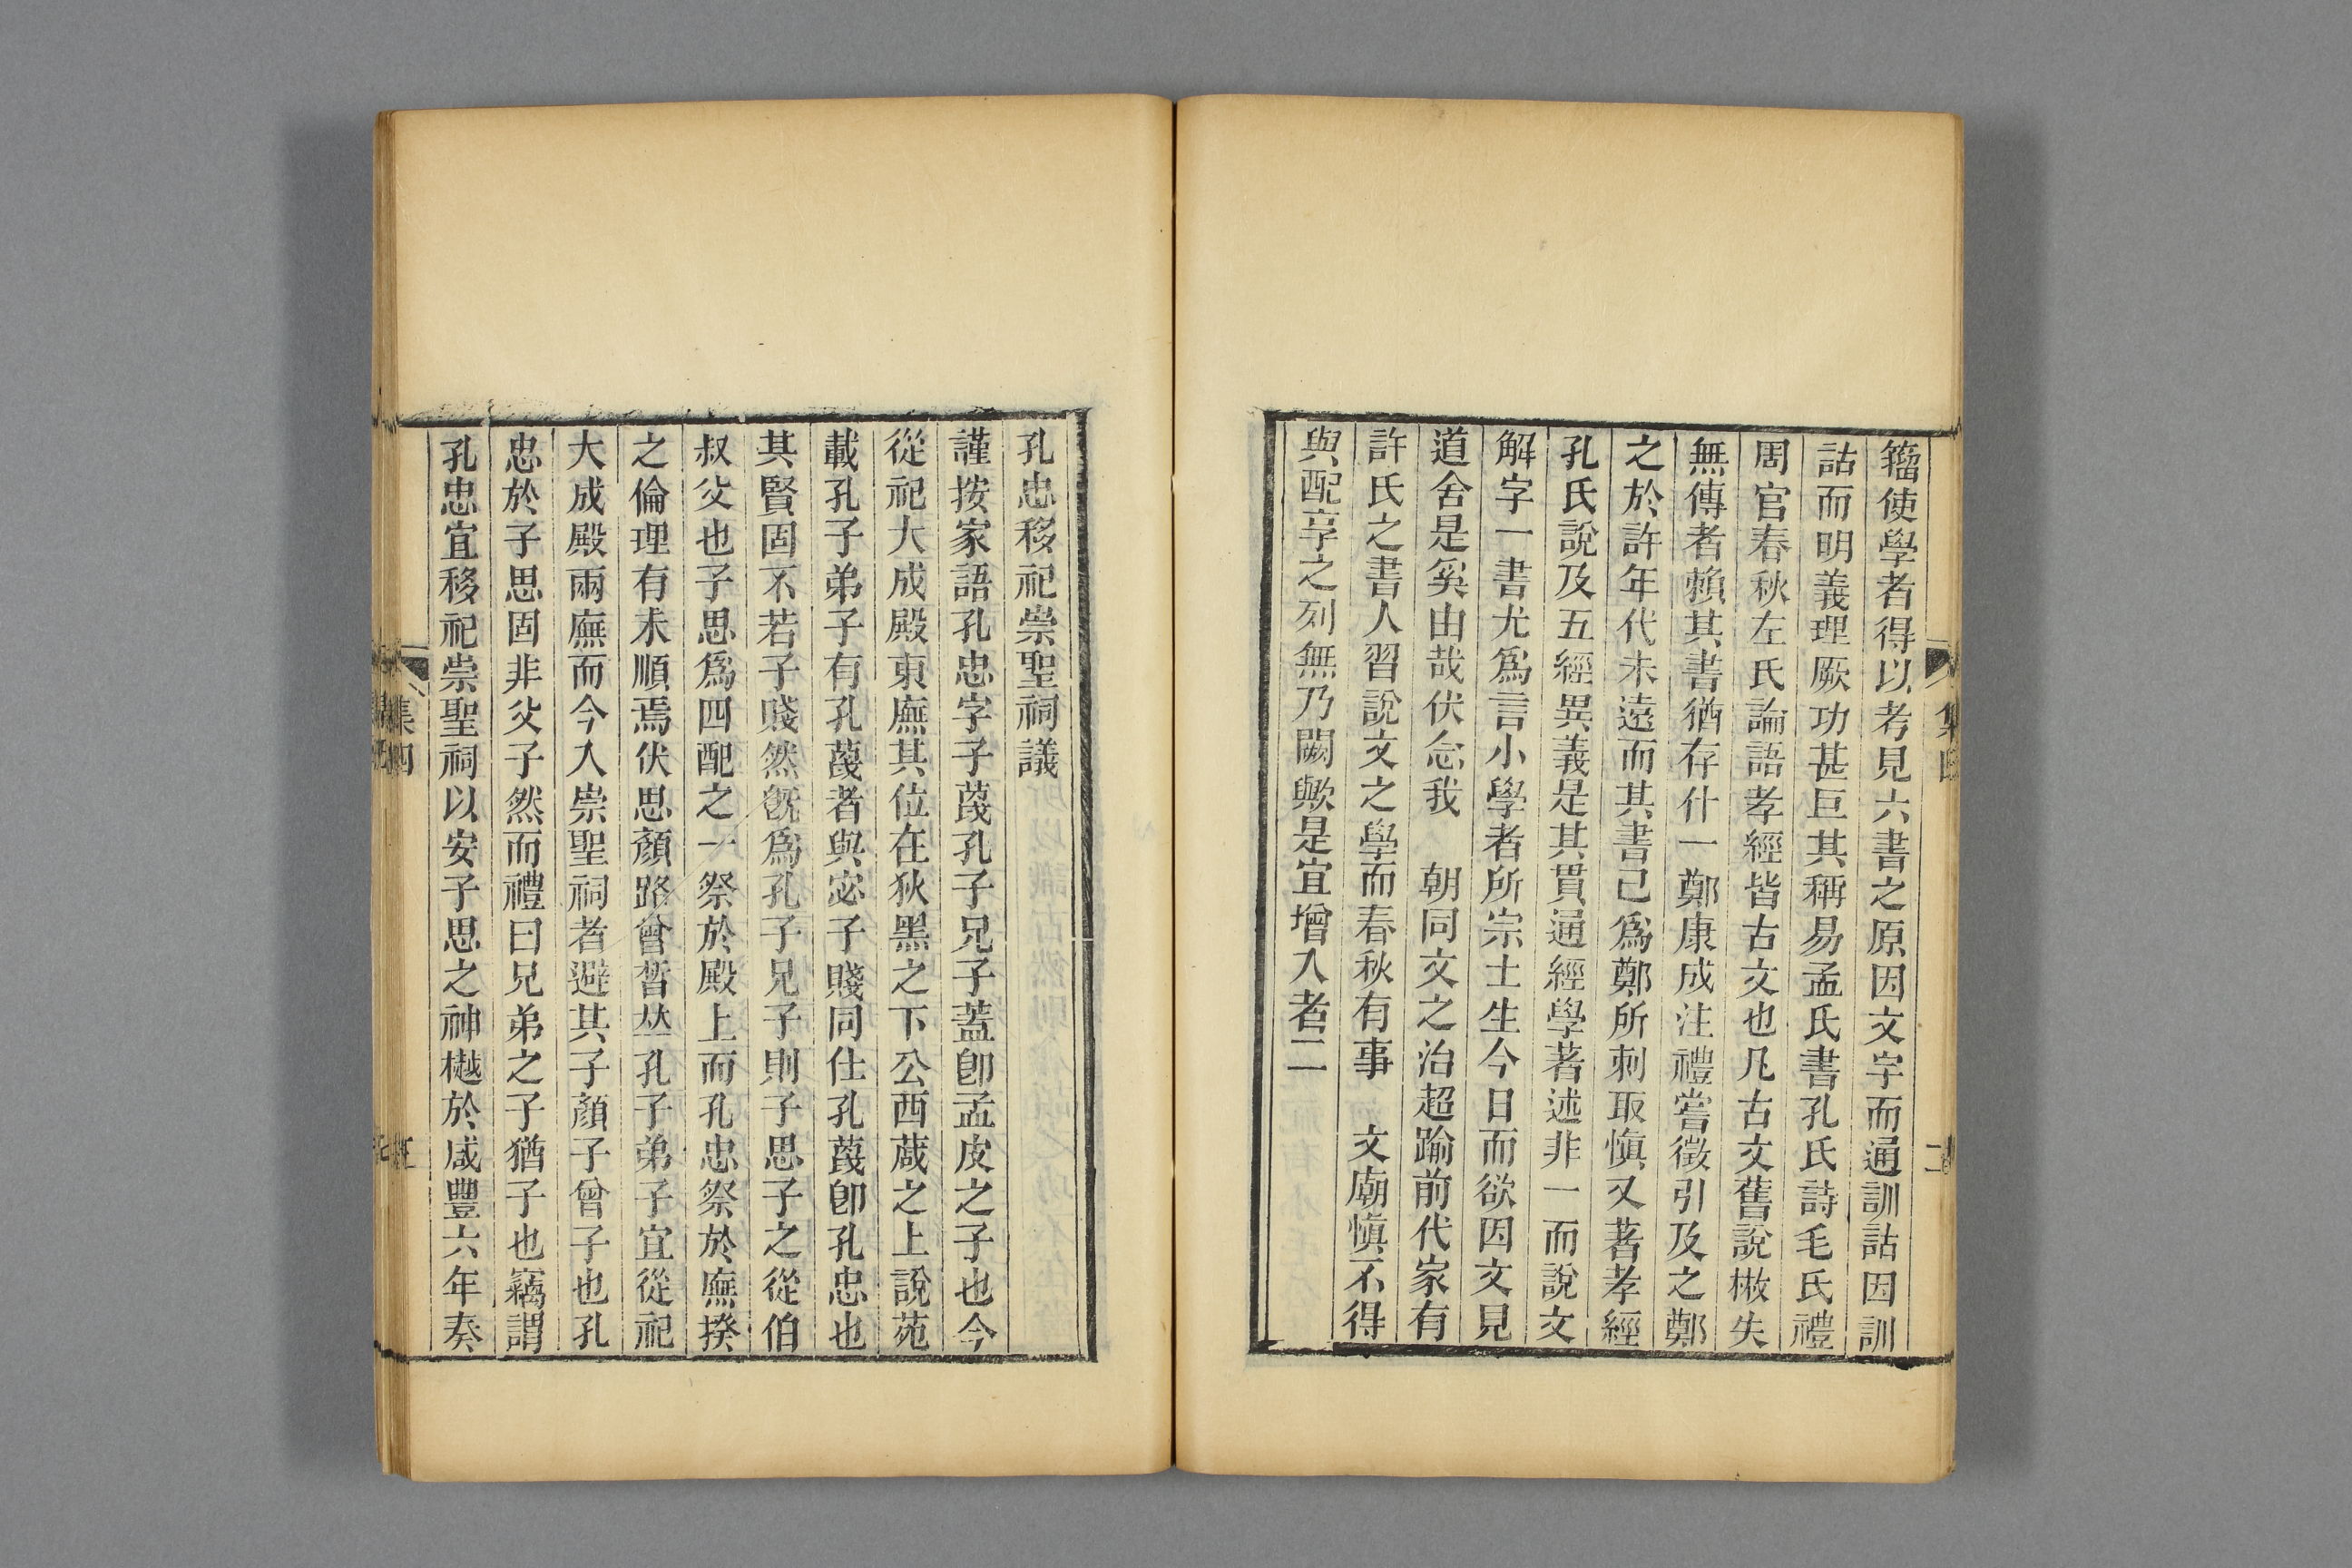 籀使學者得以考見六書之原因文字而通訓詁因訓
詁而明義理厥功甚巨其稱易孟氏書孔氏詩毛氏禮
周官春秋左氏論語孝經皆古文也凡古文舊說散失
無傳者賴其書猶存什一鄭康成注禮嘗徵引及之鄭
之於許年代未遠而其書已為鄭所刺取慎又著孝經
孔氏說及五經異義是其貫通經學著述非一而說文
解字一書尤爲言小學者所宗士生今日而欲因文見
道舍是奚由哉伏念我　朝同文之治超踰前代家有
許氏之書人習說文之學而春秋有事　文廟慎不得
與配享之列無乃闕歟是宜增入者二
孔忠移祀崇聖祠議
謹按家語孔忠字子蔑孔子兄子蓋卽孟皮之子也今
從祀大成殿東廡其位在狄黑之下公西蒧之上說苑
載孔子弟子有孔蔑者與宓子賤同仕孔蔑卽孔忠也
其賢固不若子賤然旣爲孔子兄子則子思子之從伯
叔父也子思爲四配之一祭於殿上而孔忠祭於廡揆
之倫理有未順焉伏思顏路曾晳丛孔子弟子宜從祀
大成殿兩廡而今入崇聖祠者避其子顏子曾子也孔
忠於子思固非父子然而禮曰兄弟之子猶子也竊謂
孔忠宜移祀崇聖祠以安子思之神樾於咸豐六年奏
集四